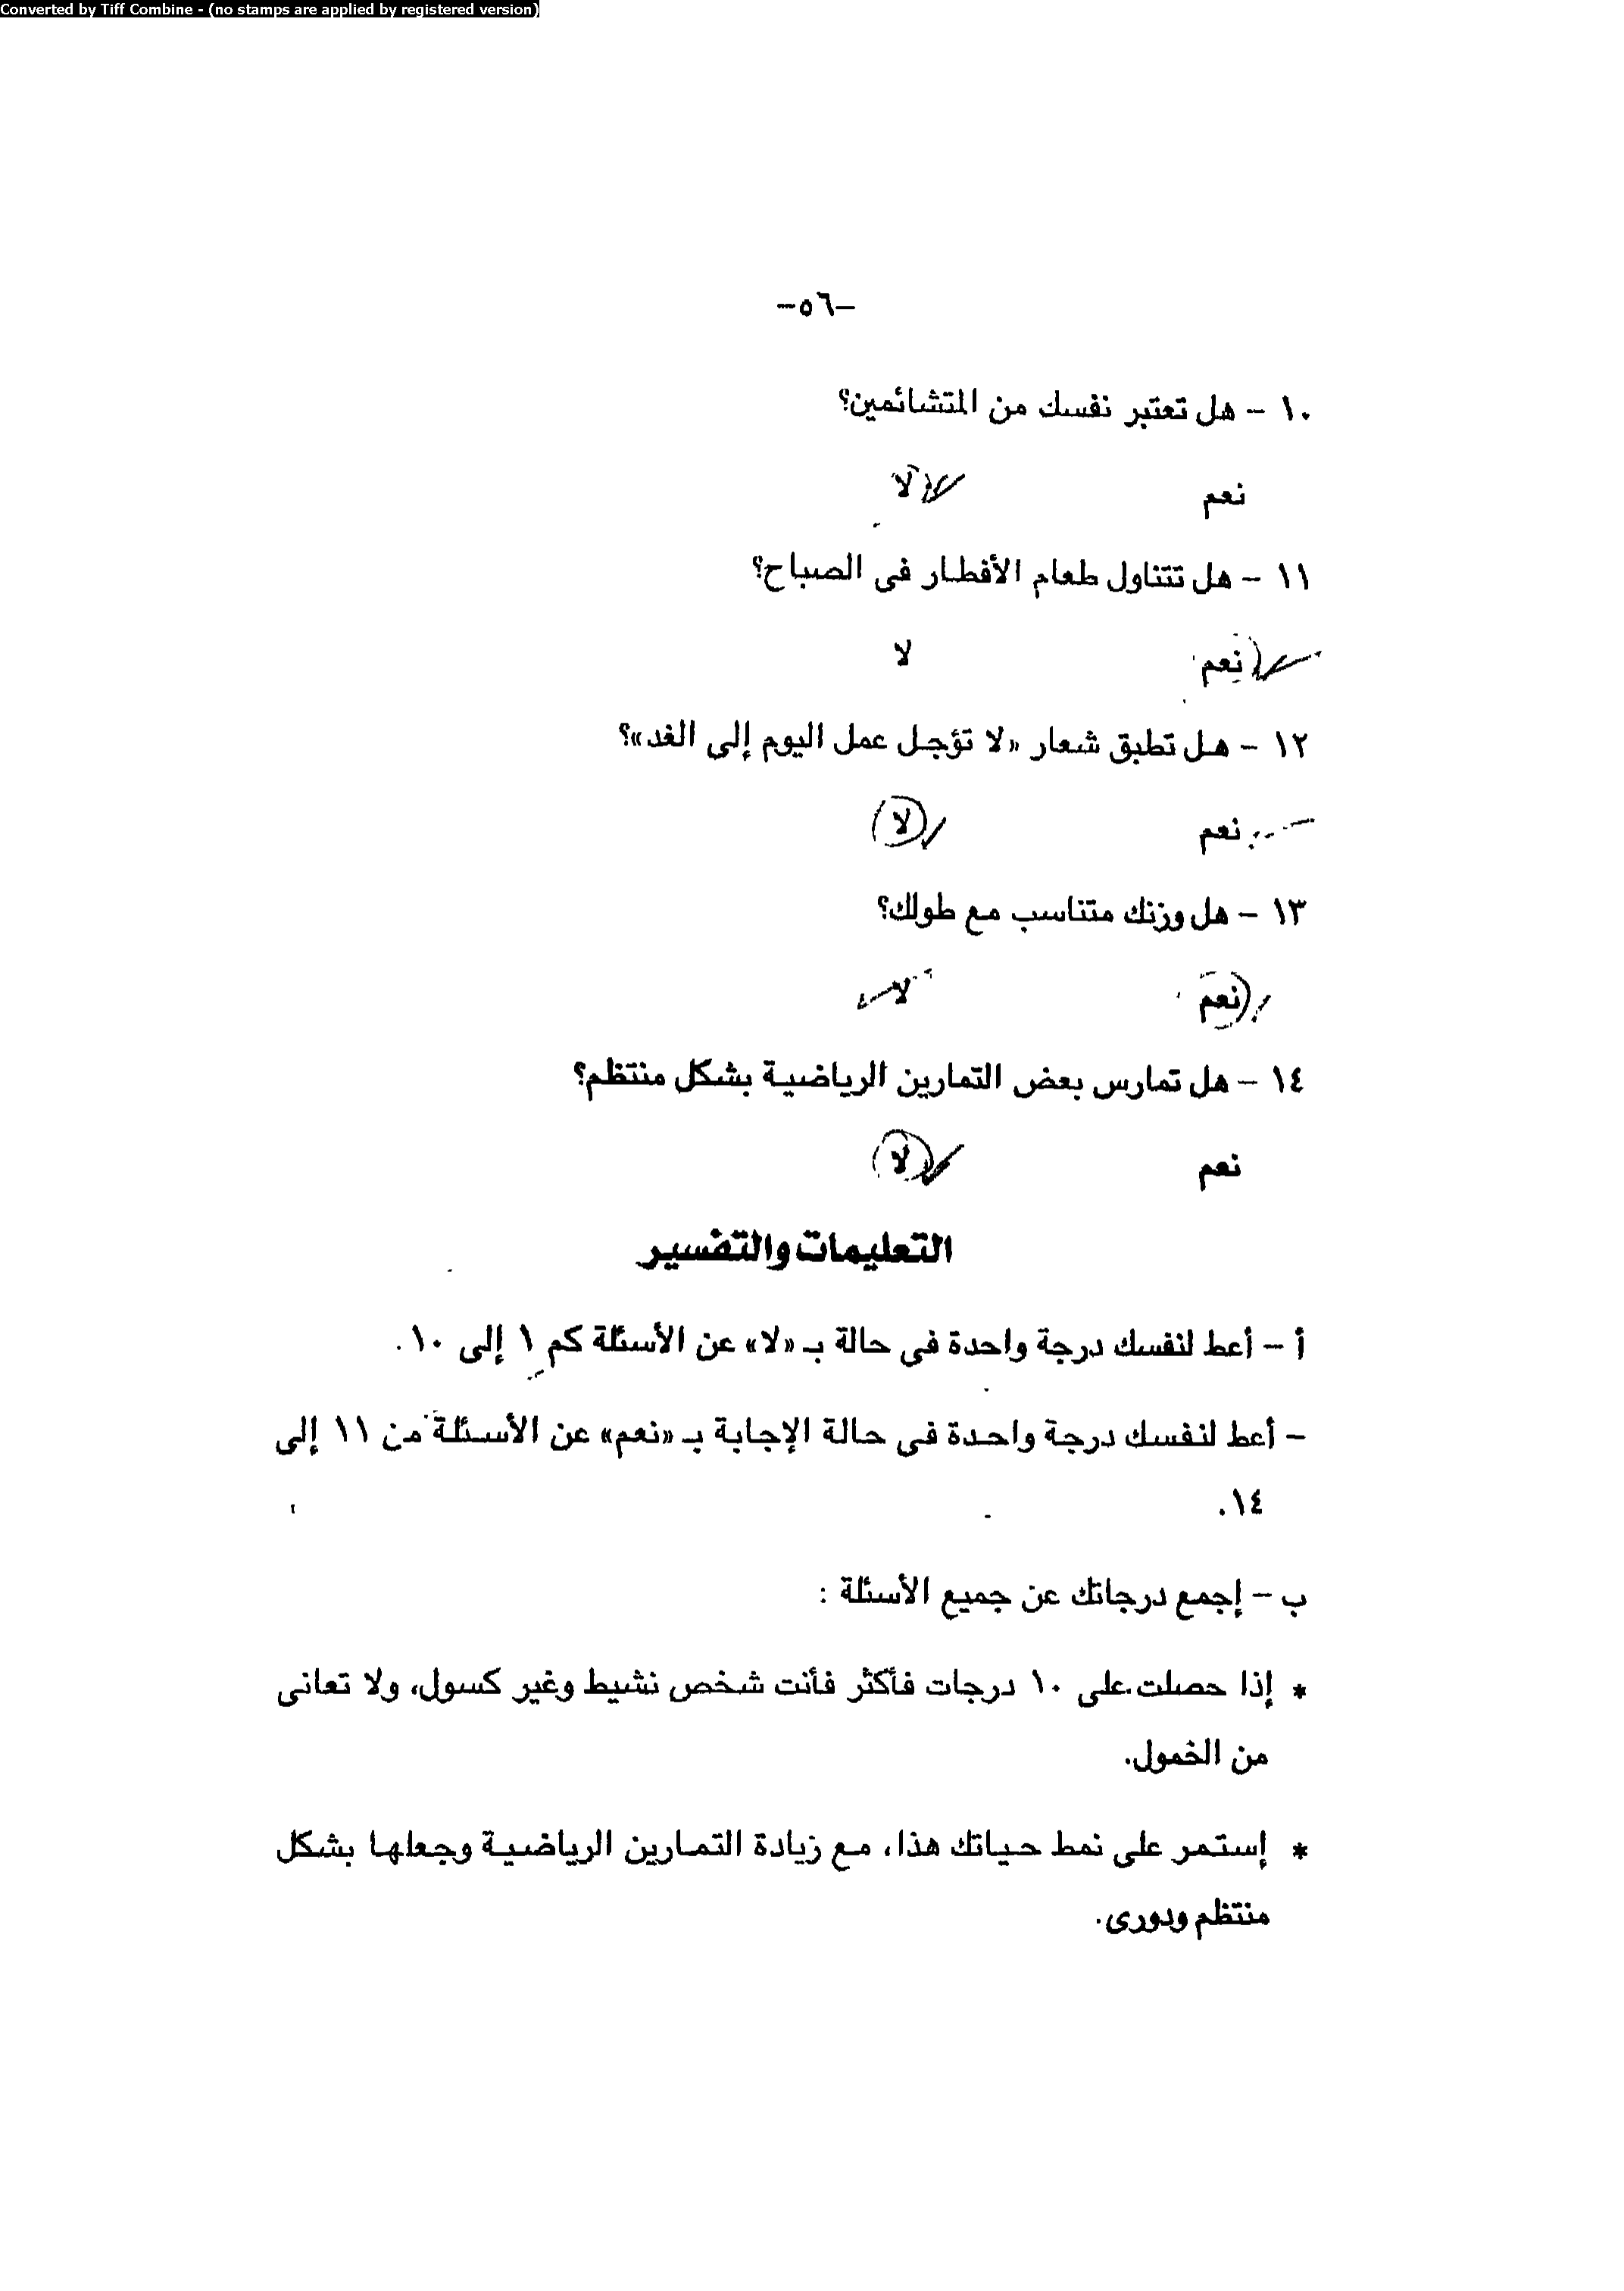 Converted by Tiff Combine - (no stamps are applied by registered version)
-٥٦-
١٠ - هل تعتبر نفسك من المتشائمين؟
نعم لا
١١ - هل تتناول طعام الأفطار فى الصباح؟
نعم لا
١٢ - هل تطبق شعار «لا تؤجل عمل اليوم إلى الغد»؟
نعم لا
١٣ - هل وزنك متناسب مع طولك؟
نعم لا
١٤ - هل تمارس بعض التمارين الرياضية بشكل منتظم؟
نعم لا
التعليمات والتفسير
أ - أعط لنفسك درجة واحدة فى حالة بـ «لا» عن الأسئلة كم ١ إلى ١٠.
- أعط لنفسك درجة واحدة فى حالة الإجابة بـ «نعم» عن الأسئلة من ١١ إلى
١٤.
ب - إجمع درجاتك عن جميع الأسئلة :
* إذا حصلت على ١٠ درجات فأكثر فأنت شخص نشيط وغير كسول، ولا تعانى
من الخمول.
* إستمر على نمط حياتك هذا، مع زيادة التمارين الرياضية وجعلها بشكل
منتظم ودورى.